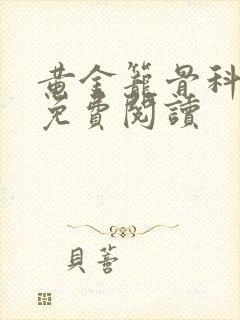 黄金籠骨科
免費閱讀
貝蒼